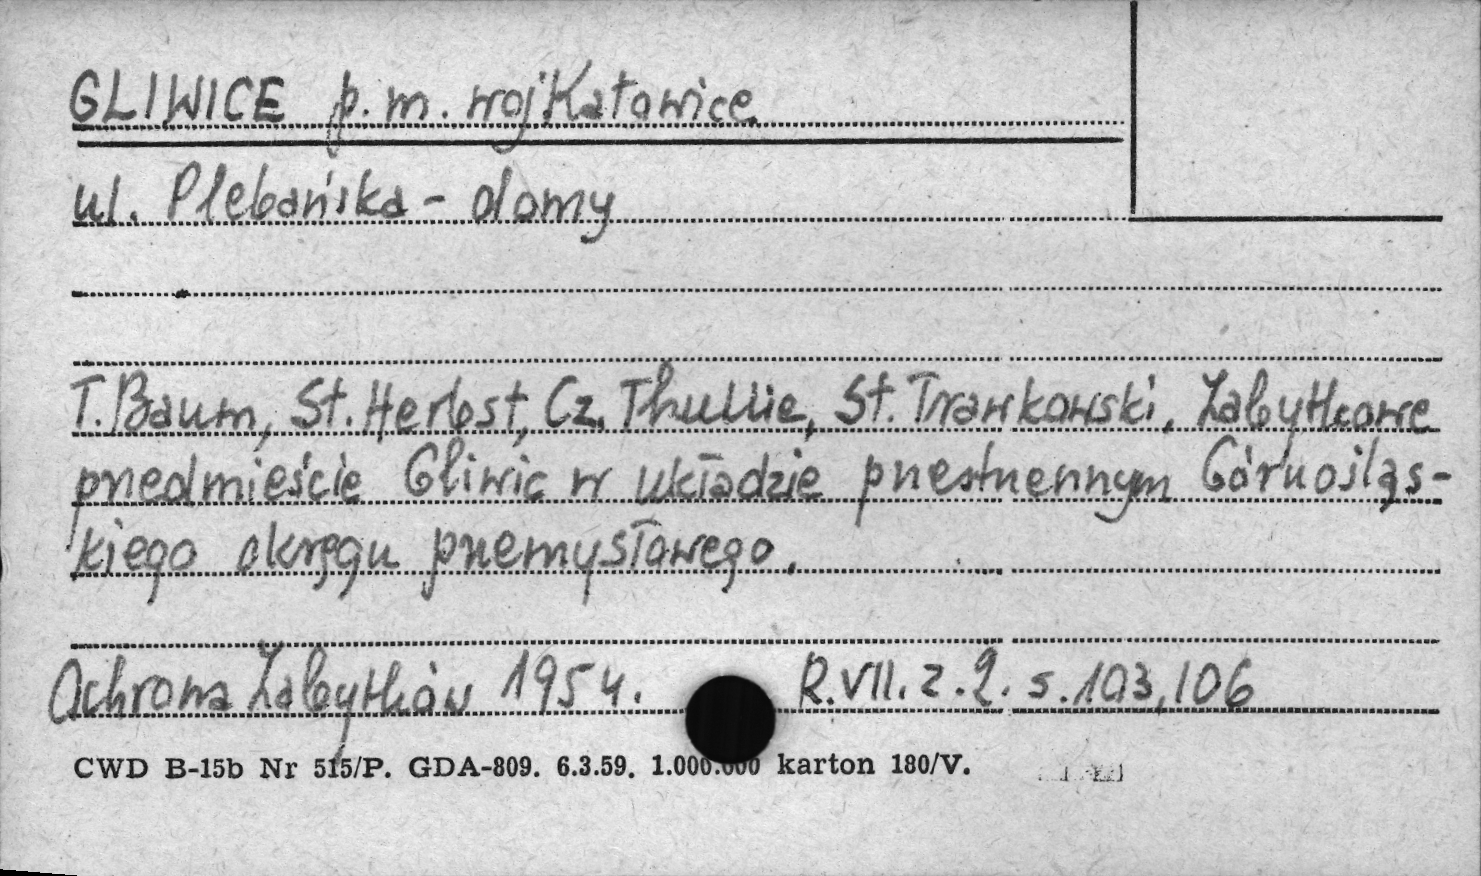 GLIWICE p. m. woj Katowice
ul. Plebańska - domy
T. Baum, St. Herbst, Cz. Thullie, St. Trawkowski, Zabytkowe
przedmieście Gliwic w układzie przestrzennym Górnośląs-
kiego okręgu przemysłowego.
Ochrona Zabytków 1954. R. VII. z. 2. s. 103, 106
CWD B-15b Nr 515/P. GDA-809. 6.3.59. 1.000.000 karton 180/V.